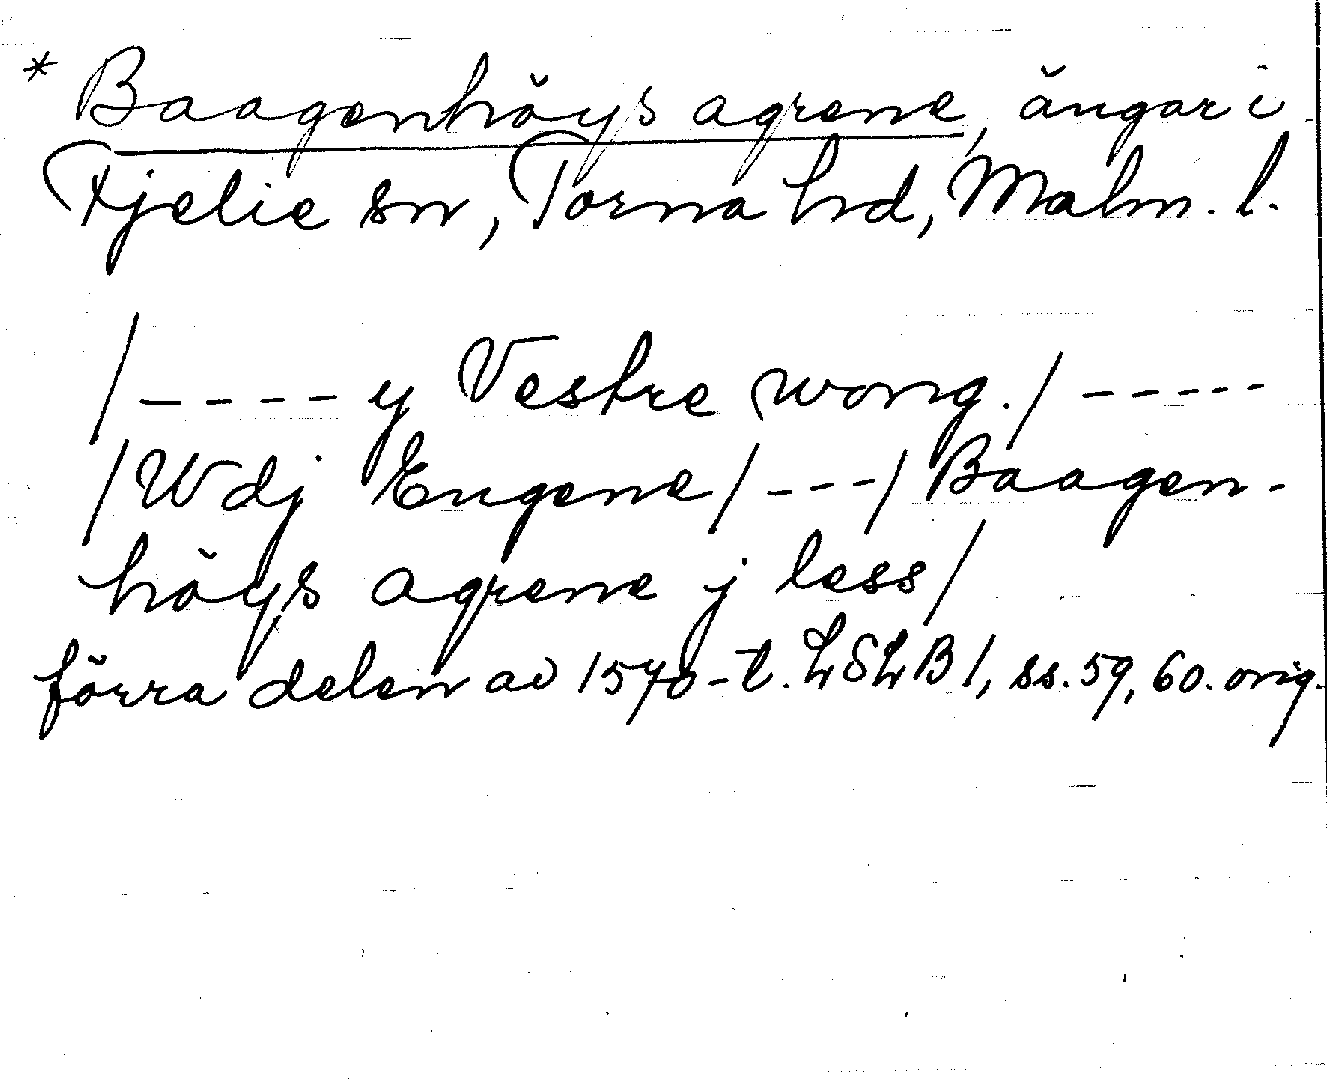 * Baagenhöys agrene, ängar i
Fjelie sn, Torna hd, Malm. l.
/----- y Vestre wong./-----
/Wdj Engene/---/Baagen-
höys agrene j less/
förra delen av 1570-t. LSLB 1, ss. 59, 60. orig.